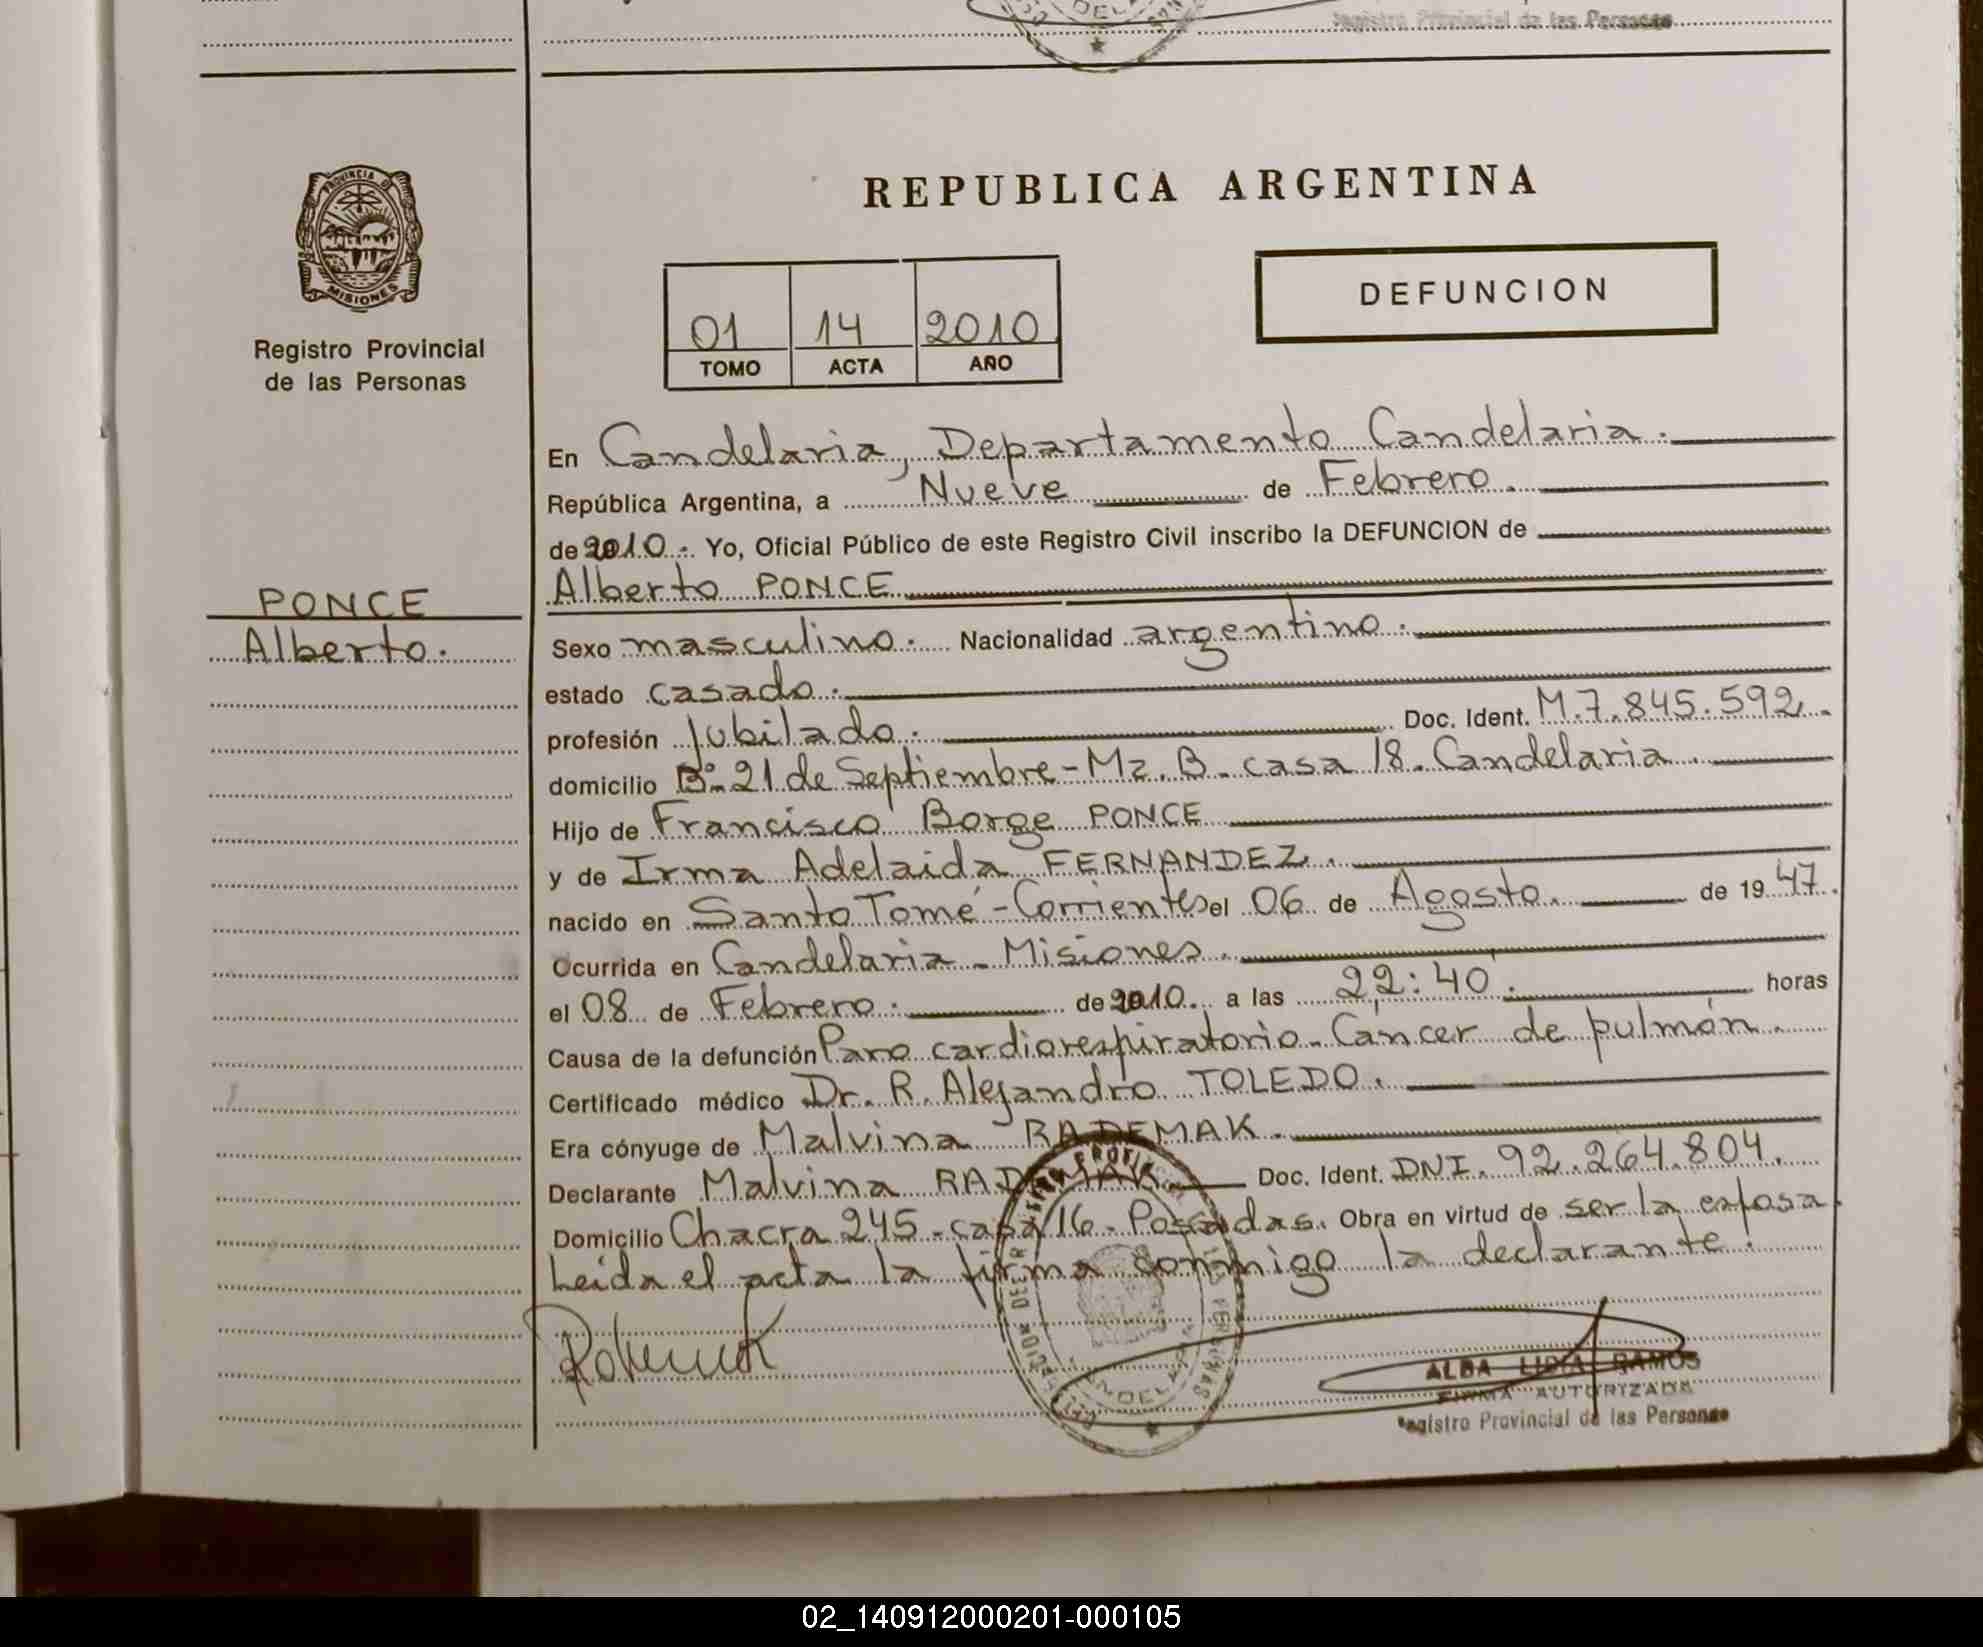 Registro Provincial de las Personas
REPUBLICA ARGENTINA
PROVINCIA DE
MISIONES
Registro Provincial
de las Personas
01 14 2010
TOMO ACTA AÑO
DEFUNCION
En Candelaria, Departamento Candelaria.
República Argentina, a Nueve de Febrero.
de 2010. Yo, Oficial Público de este Registro Civil inscribo la DEFUNCION de
PONCE
Alberto.
Alberto PONCE
Sexo masculino. Nacionalidad argentino.
estado casado.
profesión Jubilado. Doc. Ident. M.7.845.592.
domicilio B° 21 de Septiembre - Mz. B. casa 18. Candelaria.
Hijo de Francisco Borge PONCE
y de Irma Adelaida FERNANDEZ.
nacido en Santo Tomé - Corrientes el 06 de Agosto. de 1947.
Ocurrida en Candelaria - Misiones.
el 08 de Febrero. de 2010. a las 22:40. horas
Causa de la defunción Paro cardiorespiratorio. Cáncer de pulmón.
Certificado médico Dr. R. Alejandro TOLEDO.
Era cónyuge de Malvina RADEMAK.
Declarante Malvina RADEMAK Doc. Ident. DNI. 92.264.804.
Domicilio Chacra 245 - casa 16 - Posadas. Obra en virtud de ser la esposa.
Leída el acta la firma conmigo la declarante.
ALBA LIDIA RAMOS
FIRMA AUTORIZADA
Registro Provincial de las Personas
02_140912000201-000105